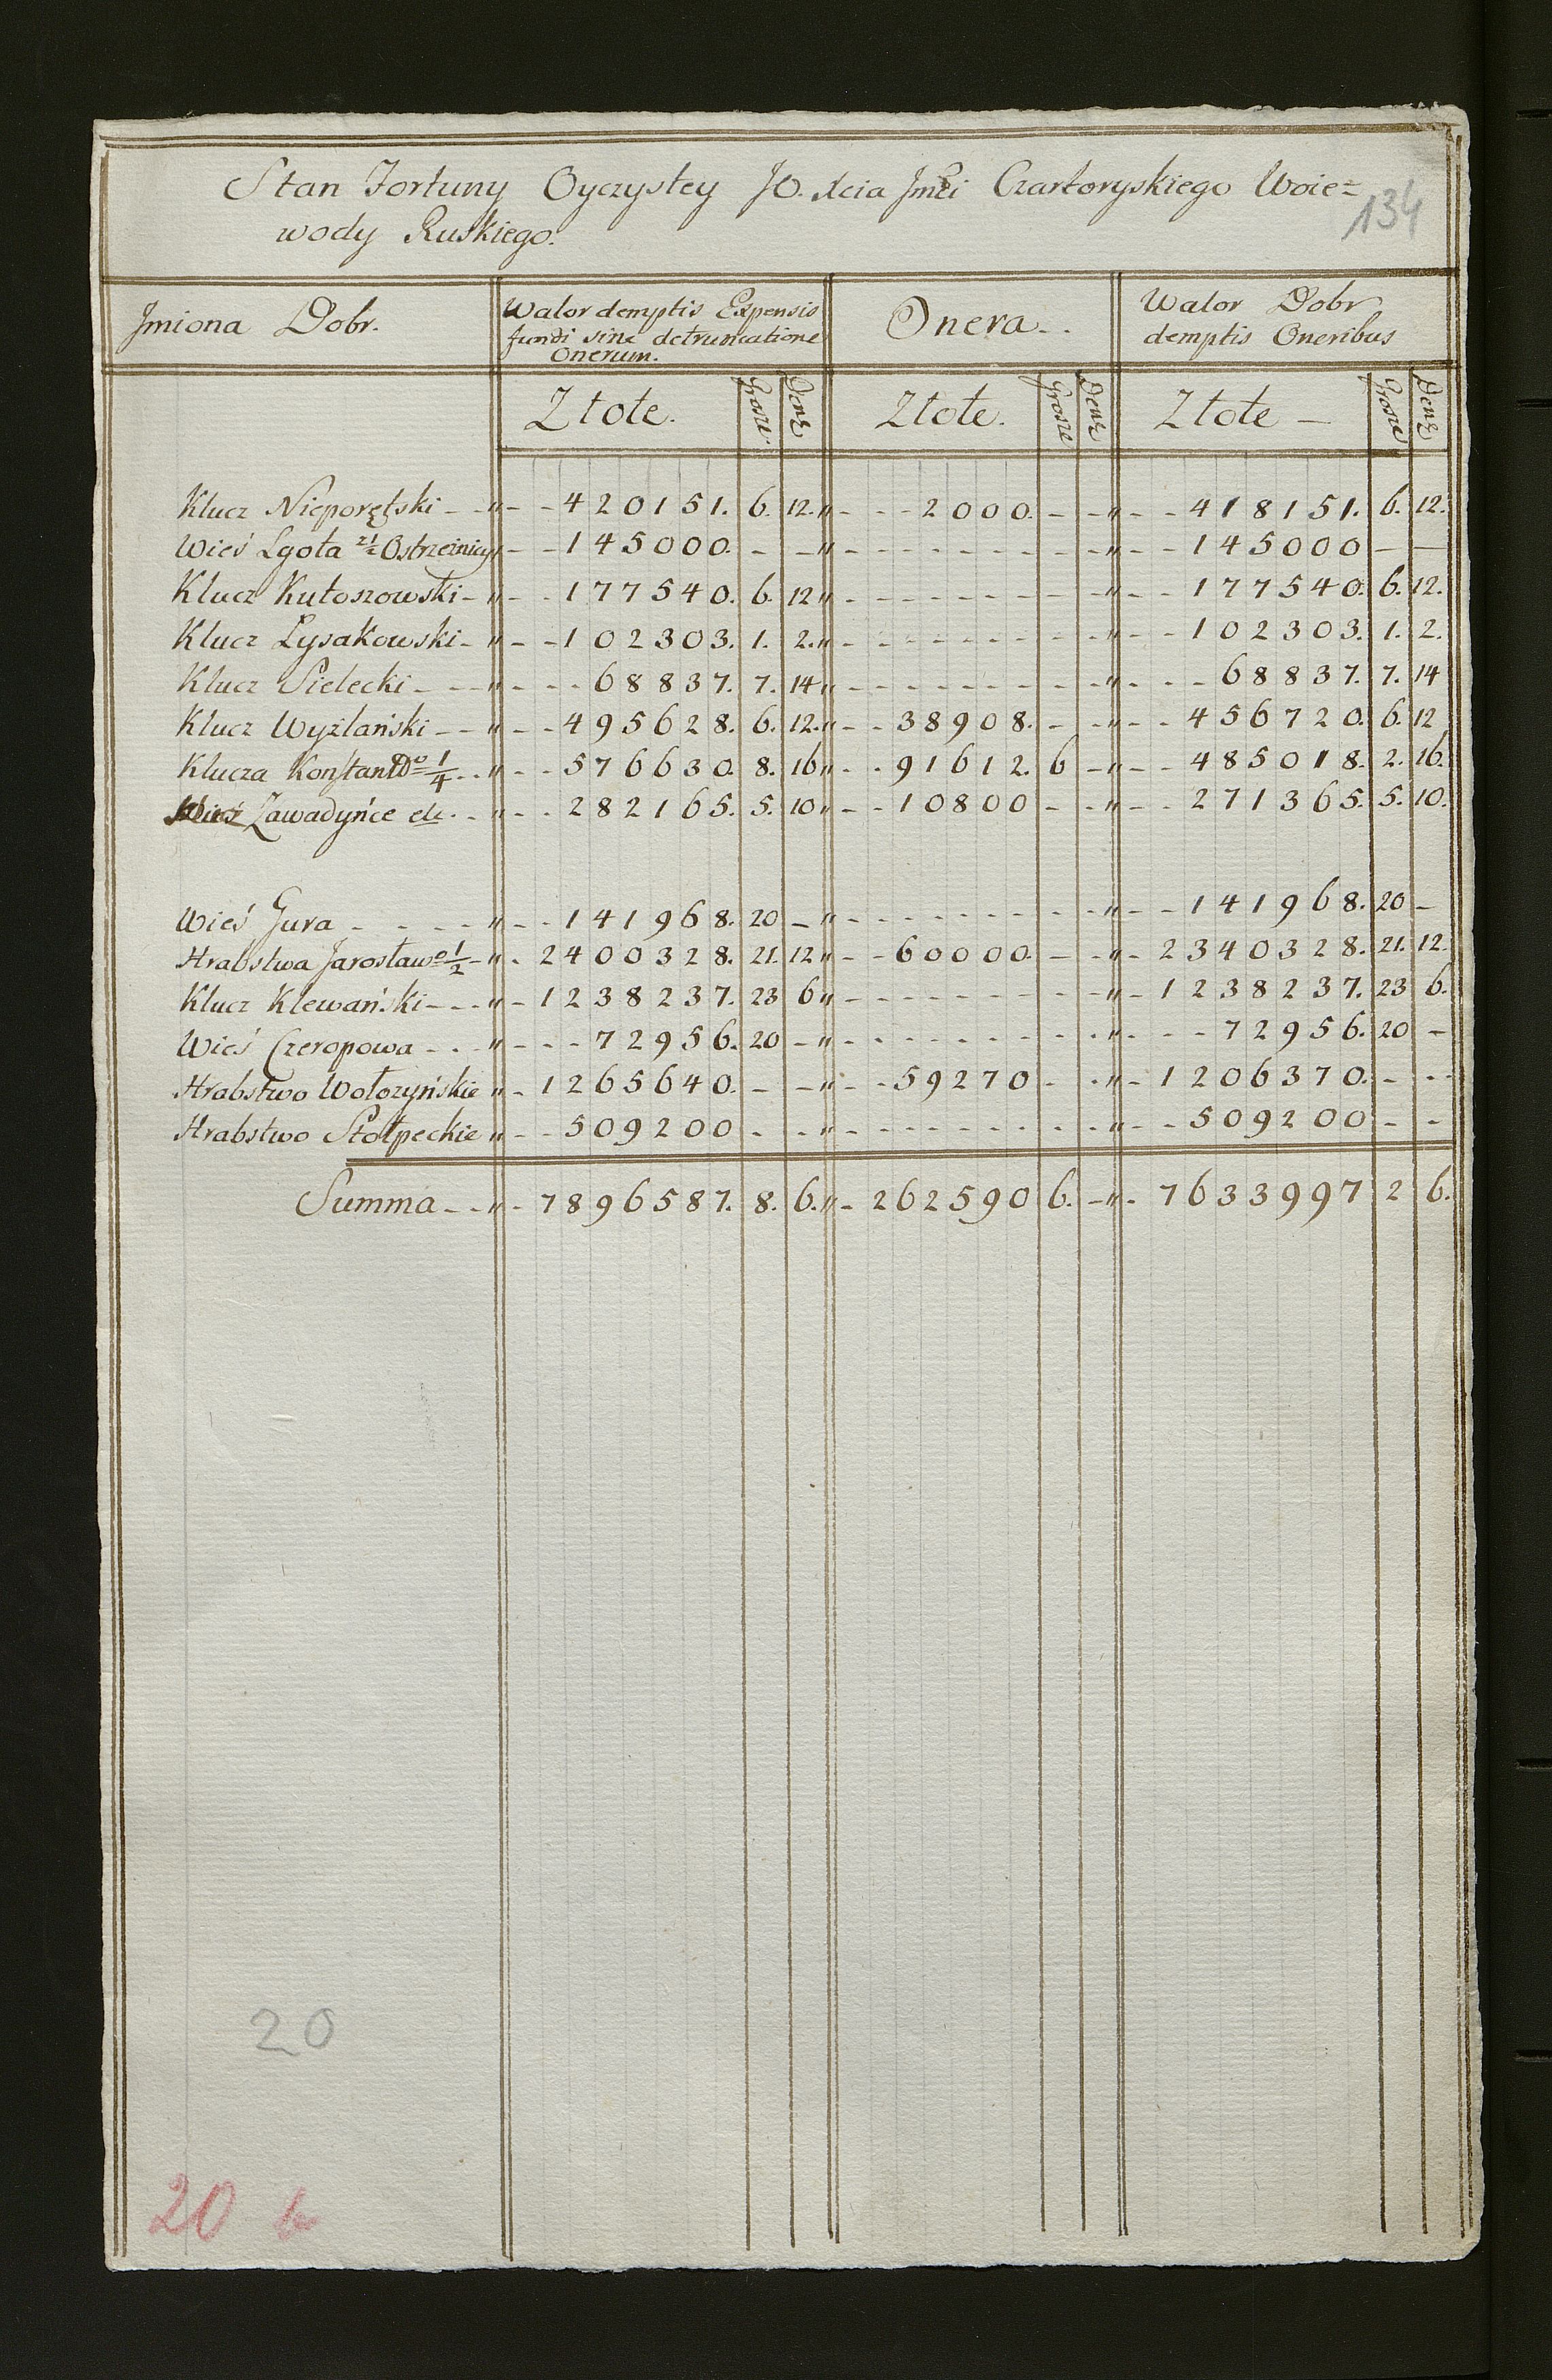 Stan Fortuny Oyczystey JO. Xcia Jmci Czartoryskiego Woie=
wody Ruskiego.
134
Jmiona Dobr. Walor demptis Expensis fundi sine detruncatione Onerum. Onera. Walor Dobr demptis Oneribus
Złote. Grosze. Den: Złote. Grosze Den: Złote Grosze Den:
Klucz Nieporętski 420151. 6. 12. 2000. 418151. 6. 12.
Wieś Lgota z ½ Ostrzeinicy 145000. 145000
Klucz Kutoszowski 177540. 6. 12 177540. 6. 12.
Klucz Łysakowski 102303. 1. 2. 102303. 1. 2.
Klucz Sielecki 68837. 7. 14 68837. 7. 14
Klucz Wyżlański 495628. 6. 12. 38908. 456720. 6. 12
Klucza Konstant: 1/4 576630. 8. 16 91612. 6 485018. 2. 16.
Wieś Zawadyńce etc. 282165. 5. 10 10800 271365. 5. 10.
Wieś Gura 141968. 20 141968. 20
Hrabstwa Jarosław° 1/2 2400328. 21. 12 60000. 2340328. 21. 12.
Klucz Klewański 1238237. 23 6 1238237. 23 6.
Wieś Czeropowa 72956. 20 72956. 20
Hrabstwo Wołożyńskie 1265640. 59270 1206370.
Hrabstwo Stołpeckie 509200 509200
Summa 7896587. 8. 6. 262590 6. 7633997 2 6.
20
20